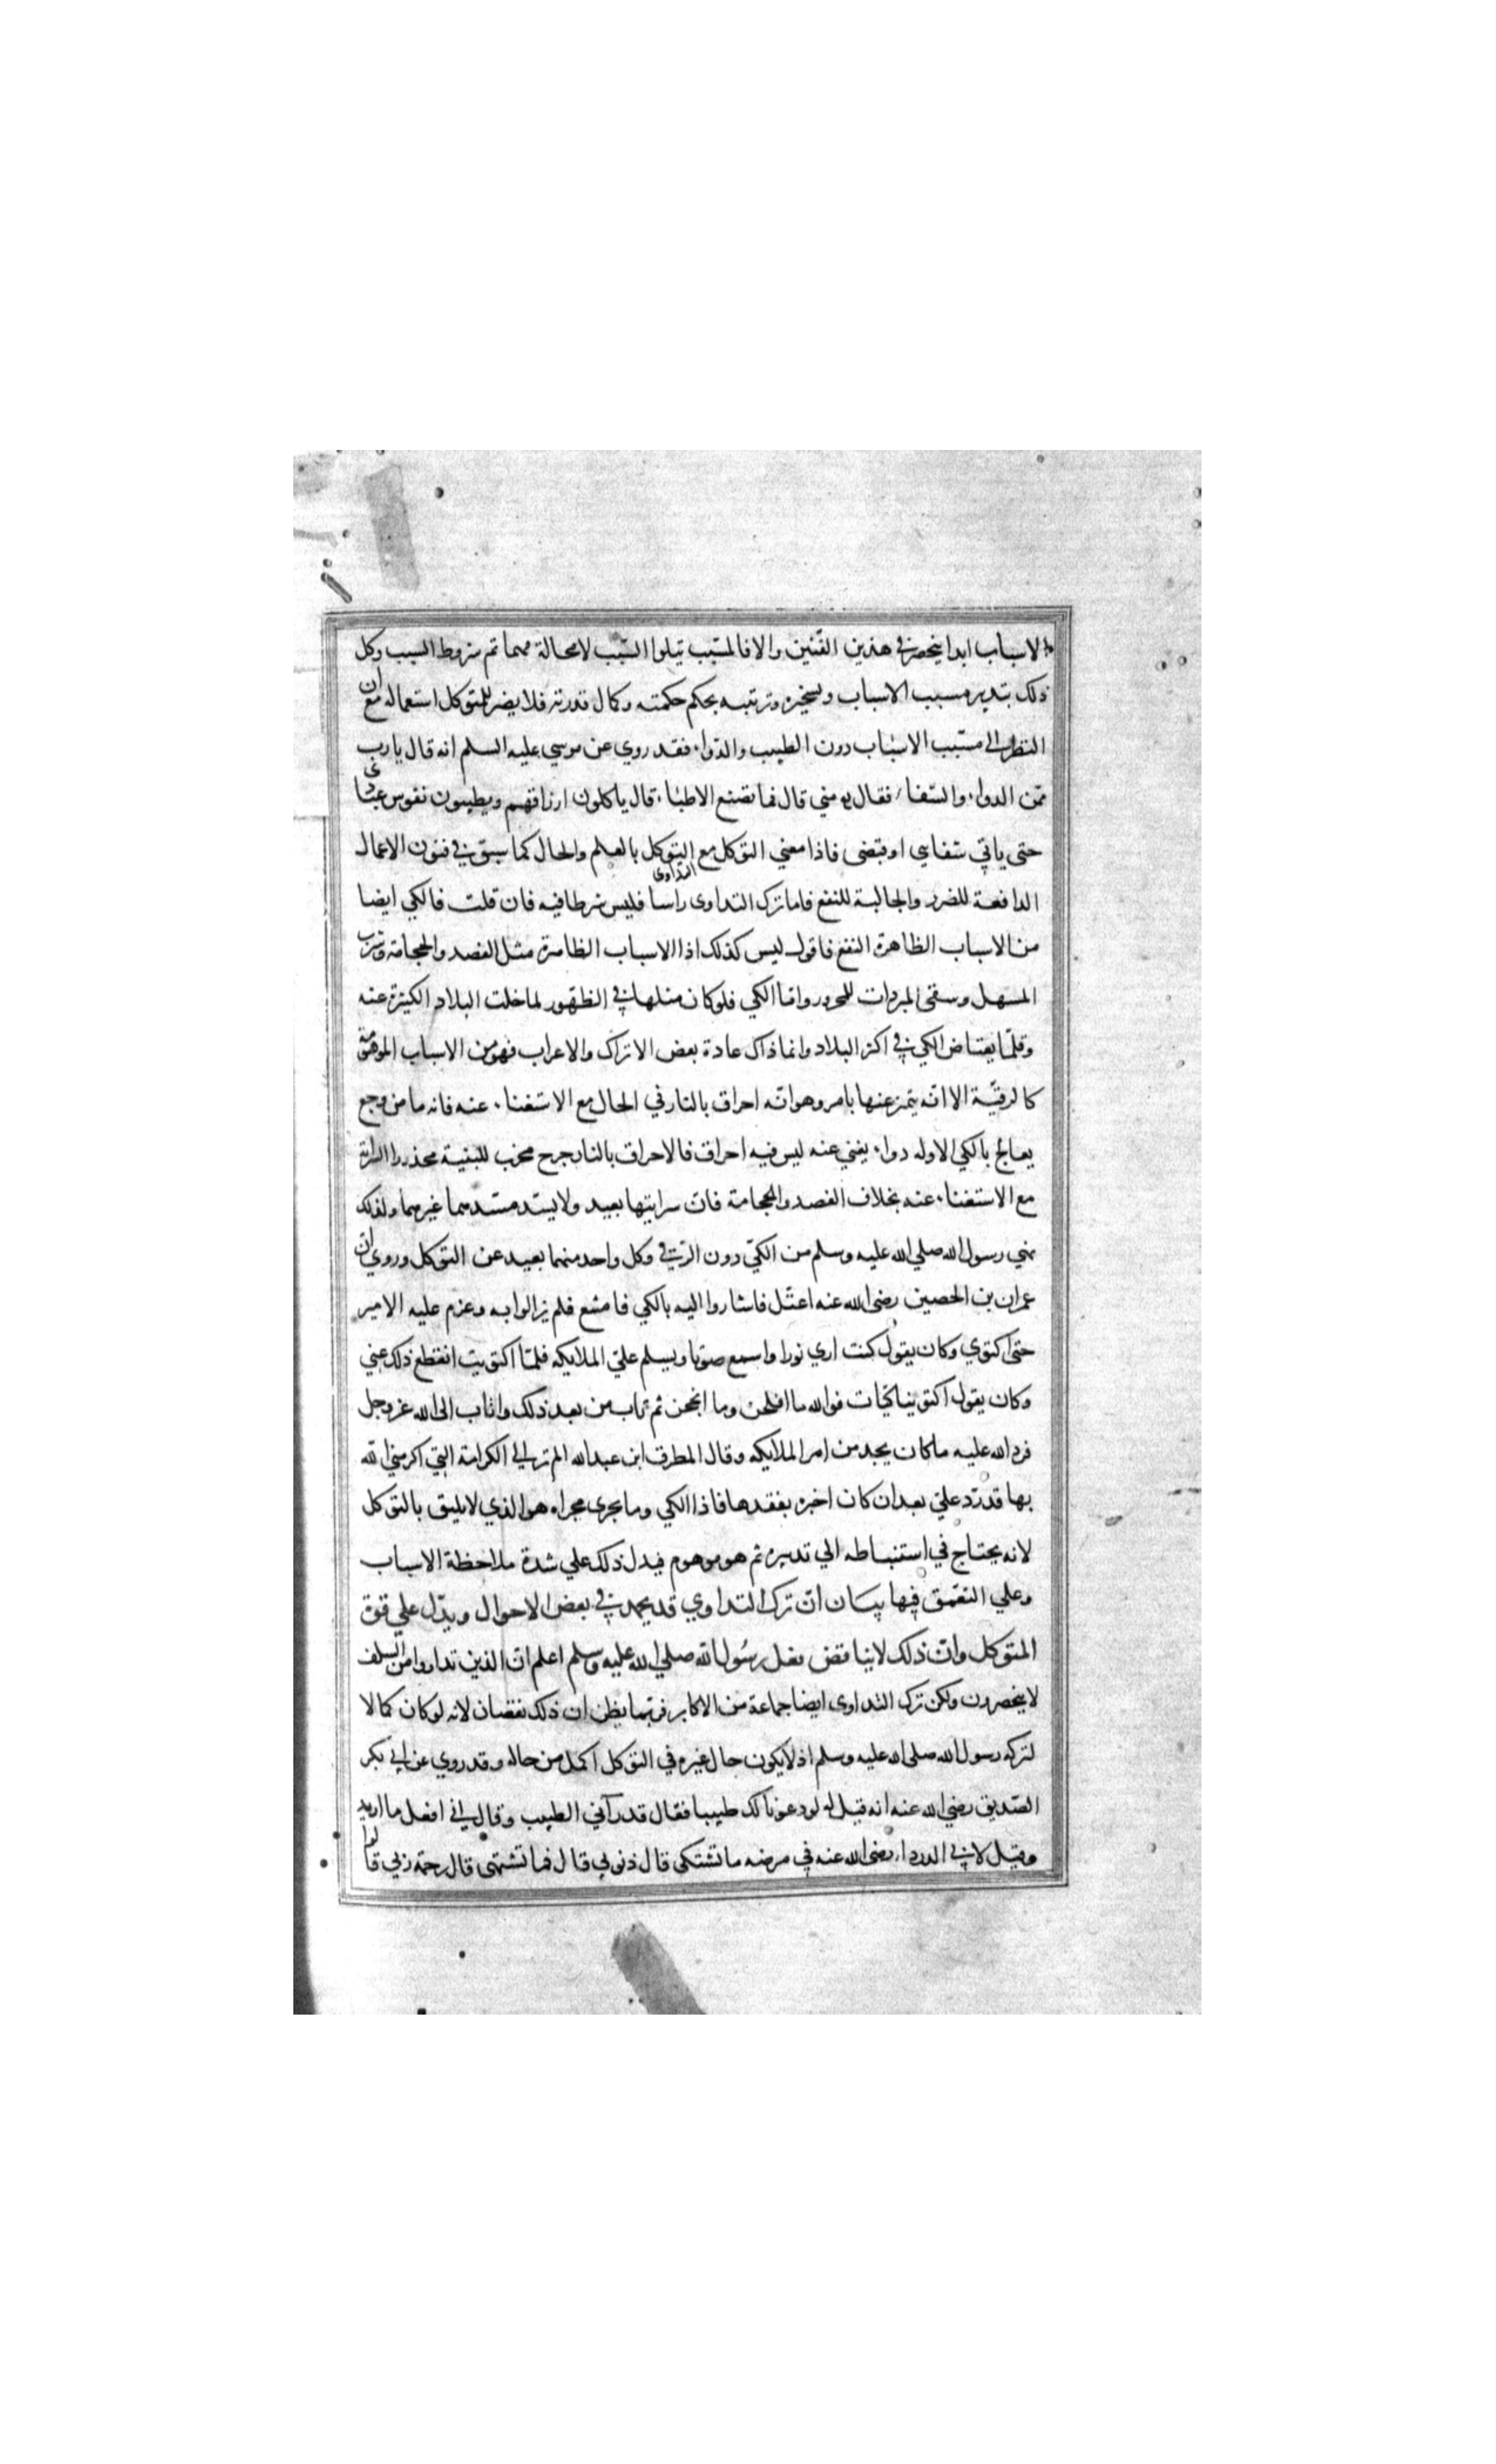 الاسباب ابدا ينحصر في هذين الفنين والا فالمسبب يتلوا السبب لا محالة مهما تم شروط السبب وكل
ذلك بتدبير مسبب الاسباب وتسخيره وترتيبه بحكم حكمته وكمال قدرته فلا يضر المتوكل استعماله مع ان
النظر الى مسبب الاسباب دون الطبيب والدواء فقد روي عن موسي عليه السلم انه قال يا رب
ممن الدواء والشفاء فقال مني قال فما تصنع الاطباء قال ياكلون ارزاقهم ويطيبون نفوس عبادي
حتى ياتي شفايي او قبضى فاذا معني التوكل مع التداوى التوكل بالعلم والحال كما سبق في فنون الاعمال
الدافعة للضرر والجالبة للنفع فاما ترك التداوى راسا فليس شرطا فيه فان قلت فالكي ايضا
من الاسباب الظاهرة النفع فاقول ليس كذلك اذا الاسباب الظاهرة مثل الفصد والحجامة وشرب
المسهل وسقى المبردات للمحرور واما الكي فلو كان مثلها في الظهور لما خلت البلاد الكثيرة عنه
وقلما يعتاض الكي في اكثر البلاد وانما ذاك عادة بعض الاتراك والاعراب فهو من الاسباب الموهومة
كالرقية الا انه يتميز عنها بامر وهو انه احراق بالنار في الحال مع الاستغناء عنه فانه ما من وجع
يعالج بالكي الا وله دواء يغني عنه ليس فيه احراق فالاحراق بالنار جرح مخرب للبنية محذور السراية
مع الاستغناء عنه بخلاف الفصد والحجامة فان سرايتها بعيد ولا يسد مسدهما غيرهما ولذلك
نهي رسول الله صلي الله عليه وسلم من الكي دون الرقي وكل واحد منهما بعيد عن التوكل وروي ان
عمران بن الحصين رضى الله عنه اعتل فاشاروا اليه بالكي فامتنع فلم يزالوا به وعزم عليه الامير
حتى اكتوي وكان يقول كنت اري نورا واسمع صوتا ويسلم علي الملايكه فلما اكتويت انقطع ذلك عني
وكان يقول اكتوينا كيات فوالله ما افلحن وما انجحن ثم تاب من بعد ذلك واناب الى الله عز وجل
فرد الله عليه ما كان يجد من امر الملايكه وقال المطرف ابن عبدالله الم تر الي الكرامة التي اكرمني الله
بها قد رد علي بعد ان كان اخبره بفقدها فاذا الكي وما يجرى مجراه هو الذي لا يليق بالتوكل
لانه يحتاج في استنباطه الي تدبير ثم هو موهوم فيدل ذلك علي شدة ملاحظة الاسباب
وعلي التعمق فيها بيان ان ترك التداوي قد يحمد في بعض الاحوال ويدل علي قوة
المتوكل وان ذلك لا يناقض فعل رسول الله صلي الله عليه وسلم اعلم ان الذين تداووا من السلف
لا ينحصرون ولكن ترك التداوى ايضا جماعة من الاكابر فربما يظن ان ذلك نقصان لانه لو كان كمالا
لتركه رسول الله صلى الله عليه وسلم اذ لا يكون حال غيره في التوكل اكمل من حاله وقد روي عن ابي بكر
الصديق رضي الله عنه انه قيل له لو دعونا لك طبيبا فقال قد رآني الطبيب وقال اني افعل ما اريد
وقيل لابي الدرداء رضى الله عنه في مرضه ما تشتكى قال ذنوبي قال فما تشتهى قال رحمة ربي قالوا